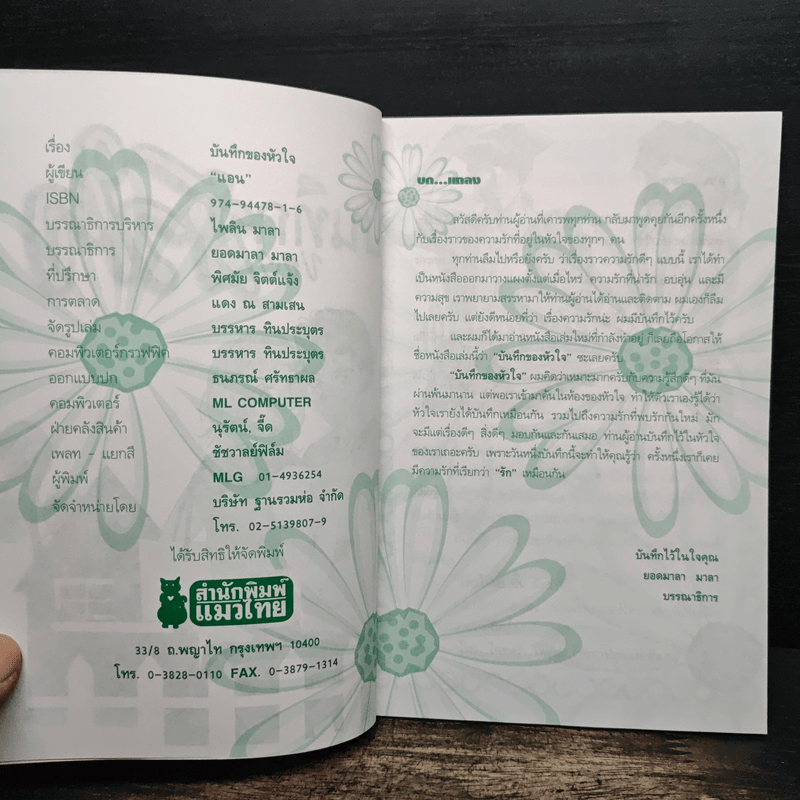 เรื่อง บันทึกของหัวใจ
ผู้เขียน "แอน"
ISBN 974-94478-1-6
บรรณาธิการบริหาร ไพลิน มาลา
บรรณาธิการ ยอดมาลา มาลา
ที่ปรึกษา พิศมัย จิตต์แจ้ง
การตลาด แดง ณ สามเสน
จัดรูปเล่ม บรรหาร ทินประบุตร
คอมพิวเตอร์กราฟฟิค บรรหาร ทินประบุตร
ออกแบบปก ธนภรณ์ ศรัทธาผล
คอมพิวเตอร์ ML COMPUTER
ฝ่ายคลังสินค้า นุรัตน์, จี๊ด
เพลท - แยกสี ชัชวาลย์ฟิล์ม
ผู้พิมพ์ MLG 01-4936254
จัดจำหน่ายโดย บริษัท ฐานรวมห่อ จำกัด
โทร. 02-5139807-9
ได้รับสิทธิให้จัดพิมพ์
สำนักพิมพ์
แมวไทย
33/8 ถ.พญาไท กรุงเทพฯ 10400
โทร. 0-3828-0110 FAX. 0-3879-1314
บก...แถลง
สวัสดีครับท่านผู้อ่านที่เคารพทุกท่าน กลับมาพูดคุยกันอีกครั้งหนึ่ง
กับเรื่องราวของความรักที่อยู่ในหัวใจของทุกๆ คน
ทุกท่านลืมไปหรือยังครับ ว่าเรื่องราวความรักดีๆ แบบนี้ เราได้ทำ
เป็นหนังสือออกมาวางแผงตั้งแต่เมื่อไหร่ ความรักที่น่ารัก อบอุ่น และมี
ความสุข เราพยายามสรรหามาให้ท่านผู้อ่านได้อ่านและติดตาม ผมเองก็ลืม
ไปเลยครับ แต่ยังดีหน่อยที่ว่า เรื่องความรักน่ะ ผมมีบันทึกไว้ครับ
และผมก็ได้มาอ่านหนังสือเล่มใหม่ที่กำลังทำอยู่ ก็เลยถือโอกาสให้
ชื่อหนังสือเล่มนี้ว่า "บันทึกของหัวใจ" ซะเลยครับ
"บันทึกของหัวใจ" ผมคิดว่าเหมาะมากครับกับความรู้สึกดีๆ ที่มัน
ผ่านพ้นมานาน แต่พอเราเข้ามาค้นในห้องของหัวใจ ทำให้ตัวเราเองรู้ได้ว่า
หัวใจเรายังได้บันทึกเหมือนกัน รวมไปถึงความรักที่พบรักกันใหม่ มัก
จะมีแต่เรื่องดีๆ สิ่งดีๆ มอบกันและกันเสมอ ท่านผู้อ่านบันทึกไว้ในหัวใจ
ของเราเถอะครับ เพราะวันหนึ่งบันทึกนี้จะทำให้คุณรู้ว่า ครั้งหนึ่งเราก็เคย
มีความรักที่เรียกว่า "รัก" เหมือนกัน
บันทึกไว้ในใจคุณ
ยอดมาลา มาลา
บรรณาธิการ